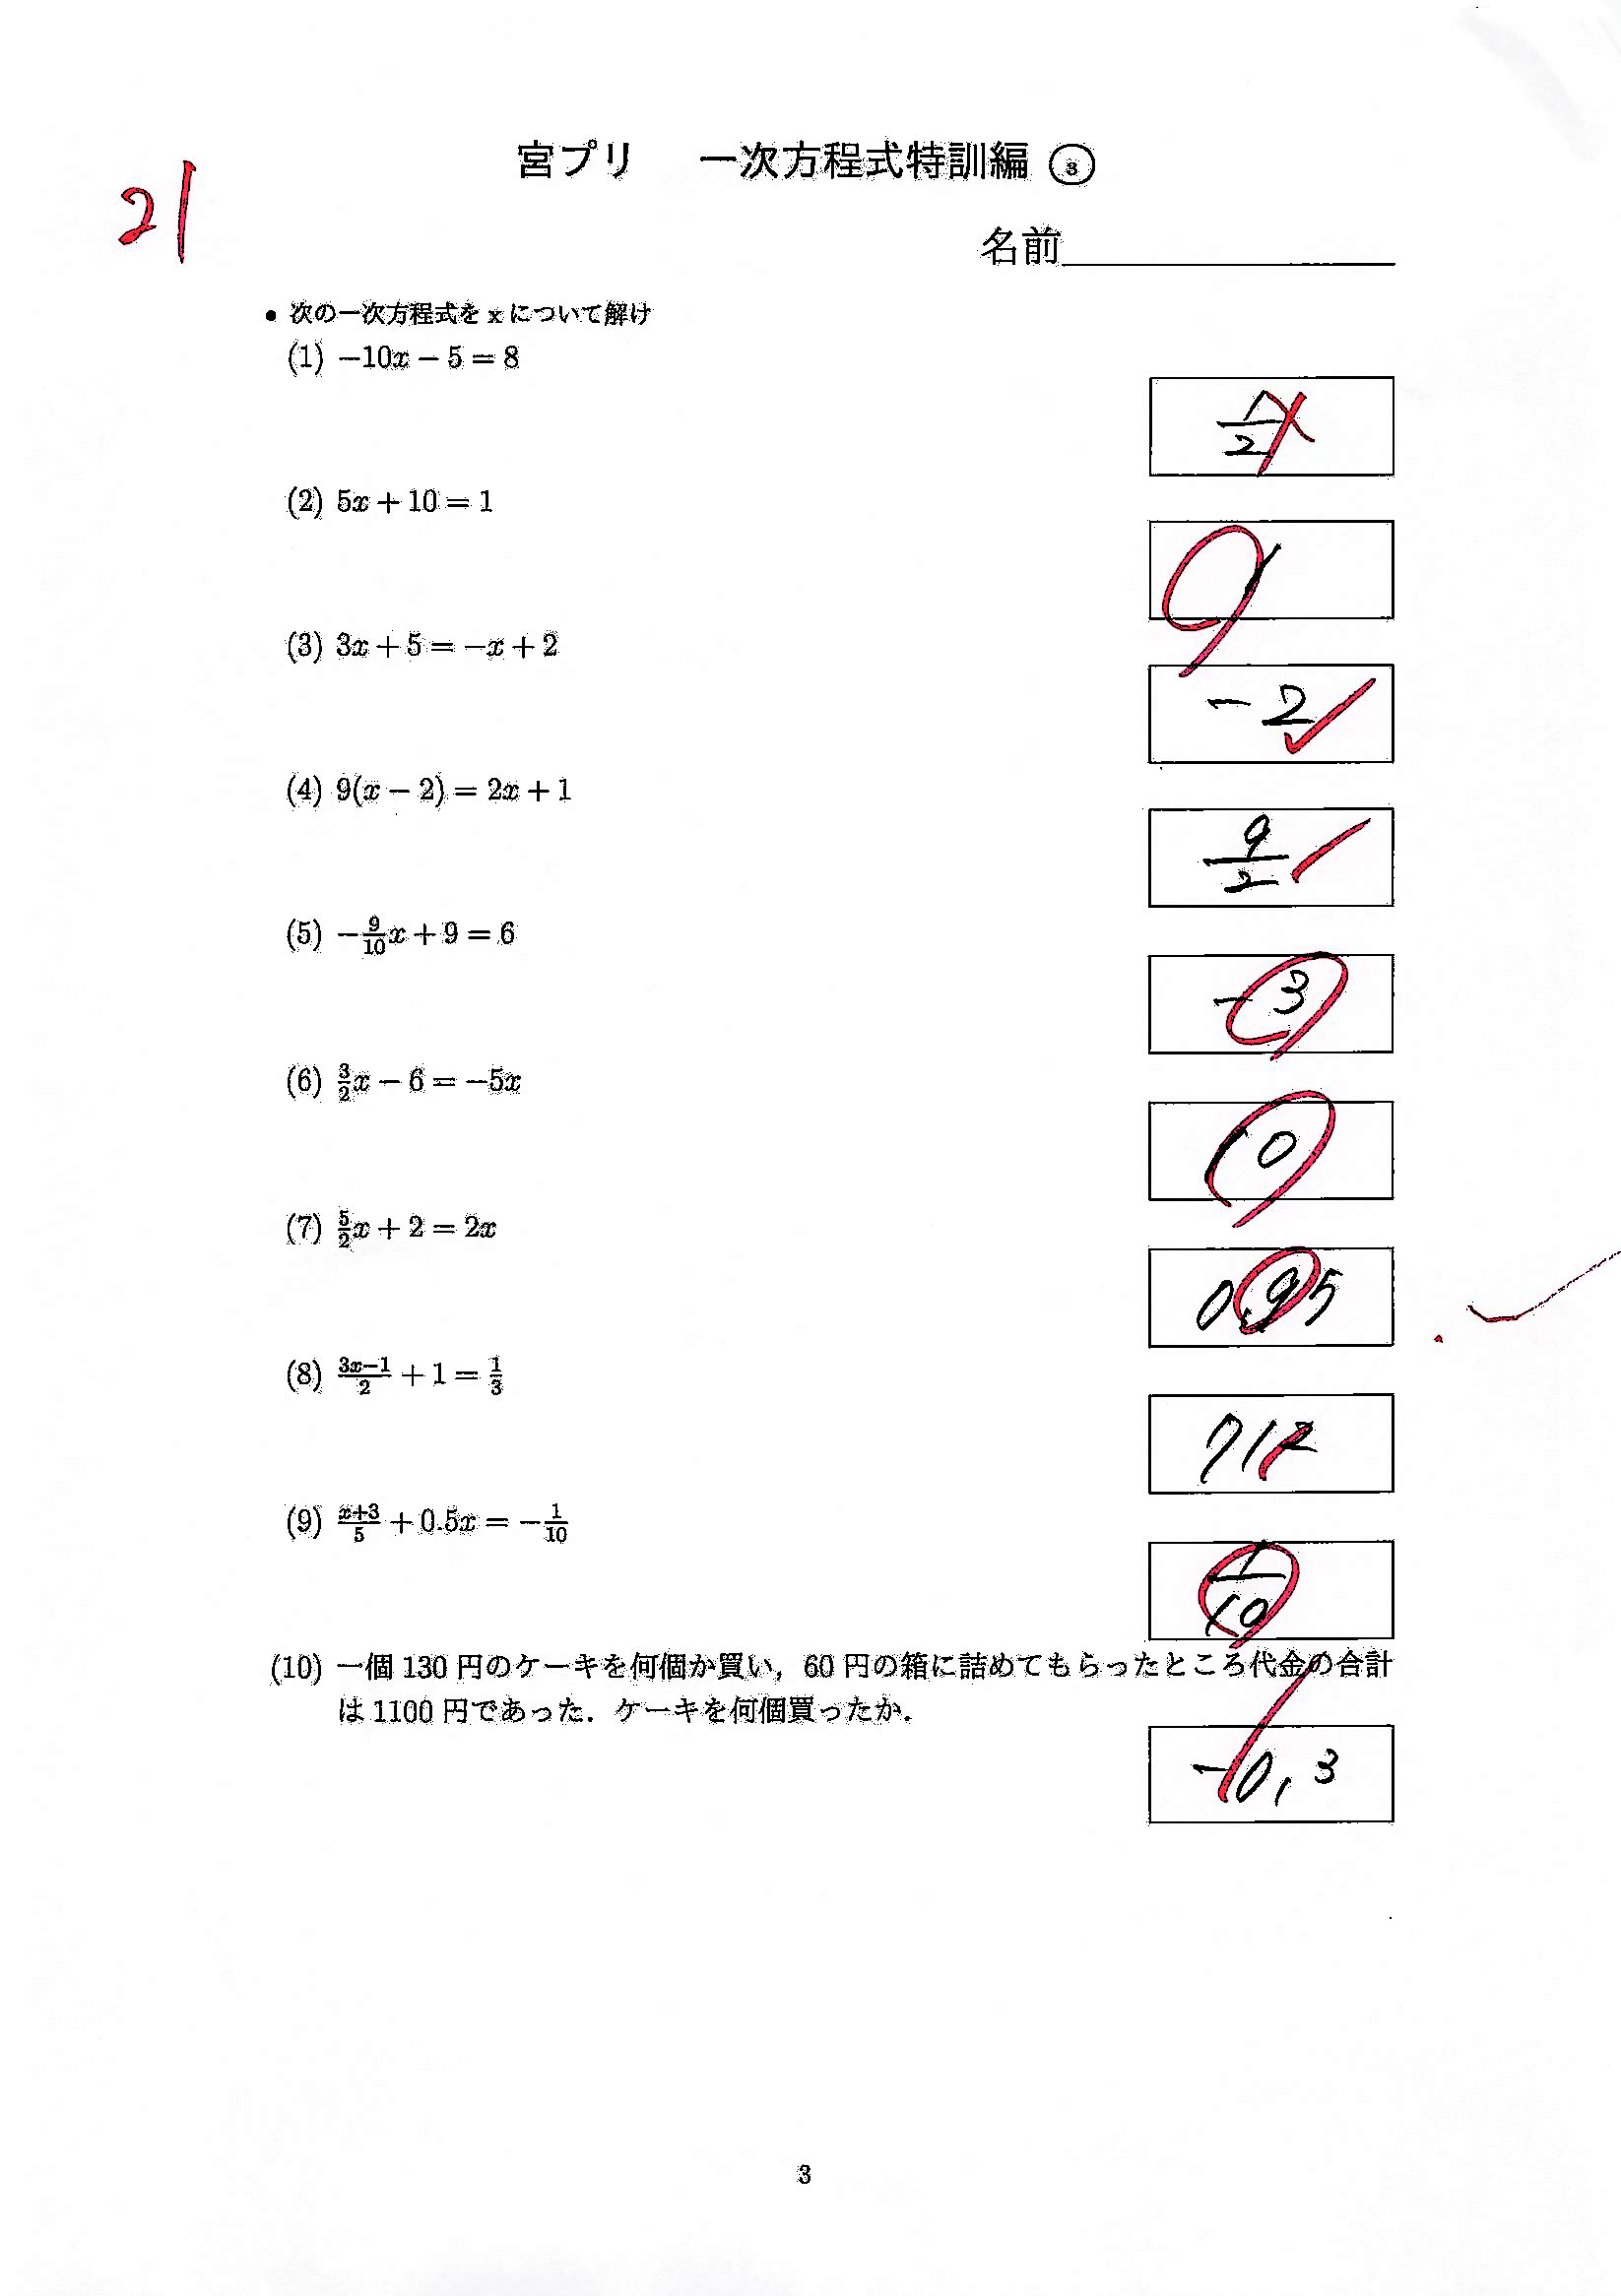 21
宮プリ 一次方程式特訓編 ③
名前
• 次の一次方程式を x について解け
(1) −10x − 5 = 8
1/2
(2) 5x + 10 = 1
1
(3) 3x + 5 = −x + 2
−2
(4) 9(x − 2) = 2x + 1
9/2
(5) −9/10x + 9 = 6
−3
(6) 3/2x − 6 = −5x
10
(7) 5/2x + 2 = 2x
0.95
(8) (3x−1)/2 + 1 = 1/3
712
(9) (x+3)/5 + 0.5x = −1/10
1/10
(10) 一個 130 円のケーキを何個か買い，60 円の箱に詰めてもらったところ代金の合計
は 1100 円であった．ケーキを何個買ったか．
−0,3
3